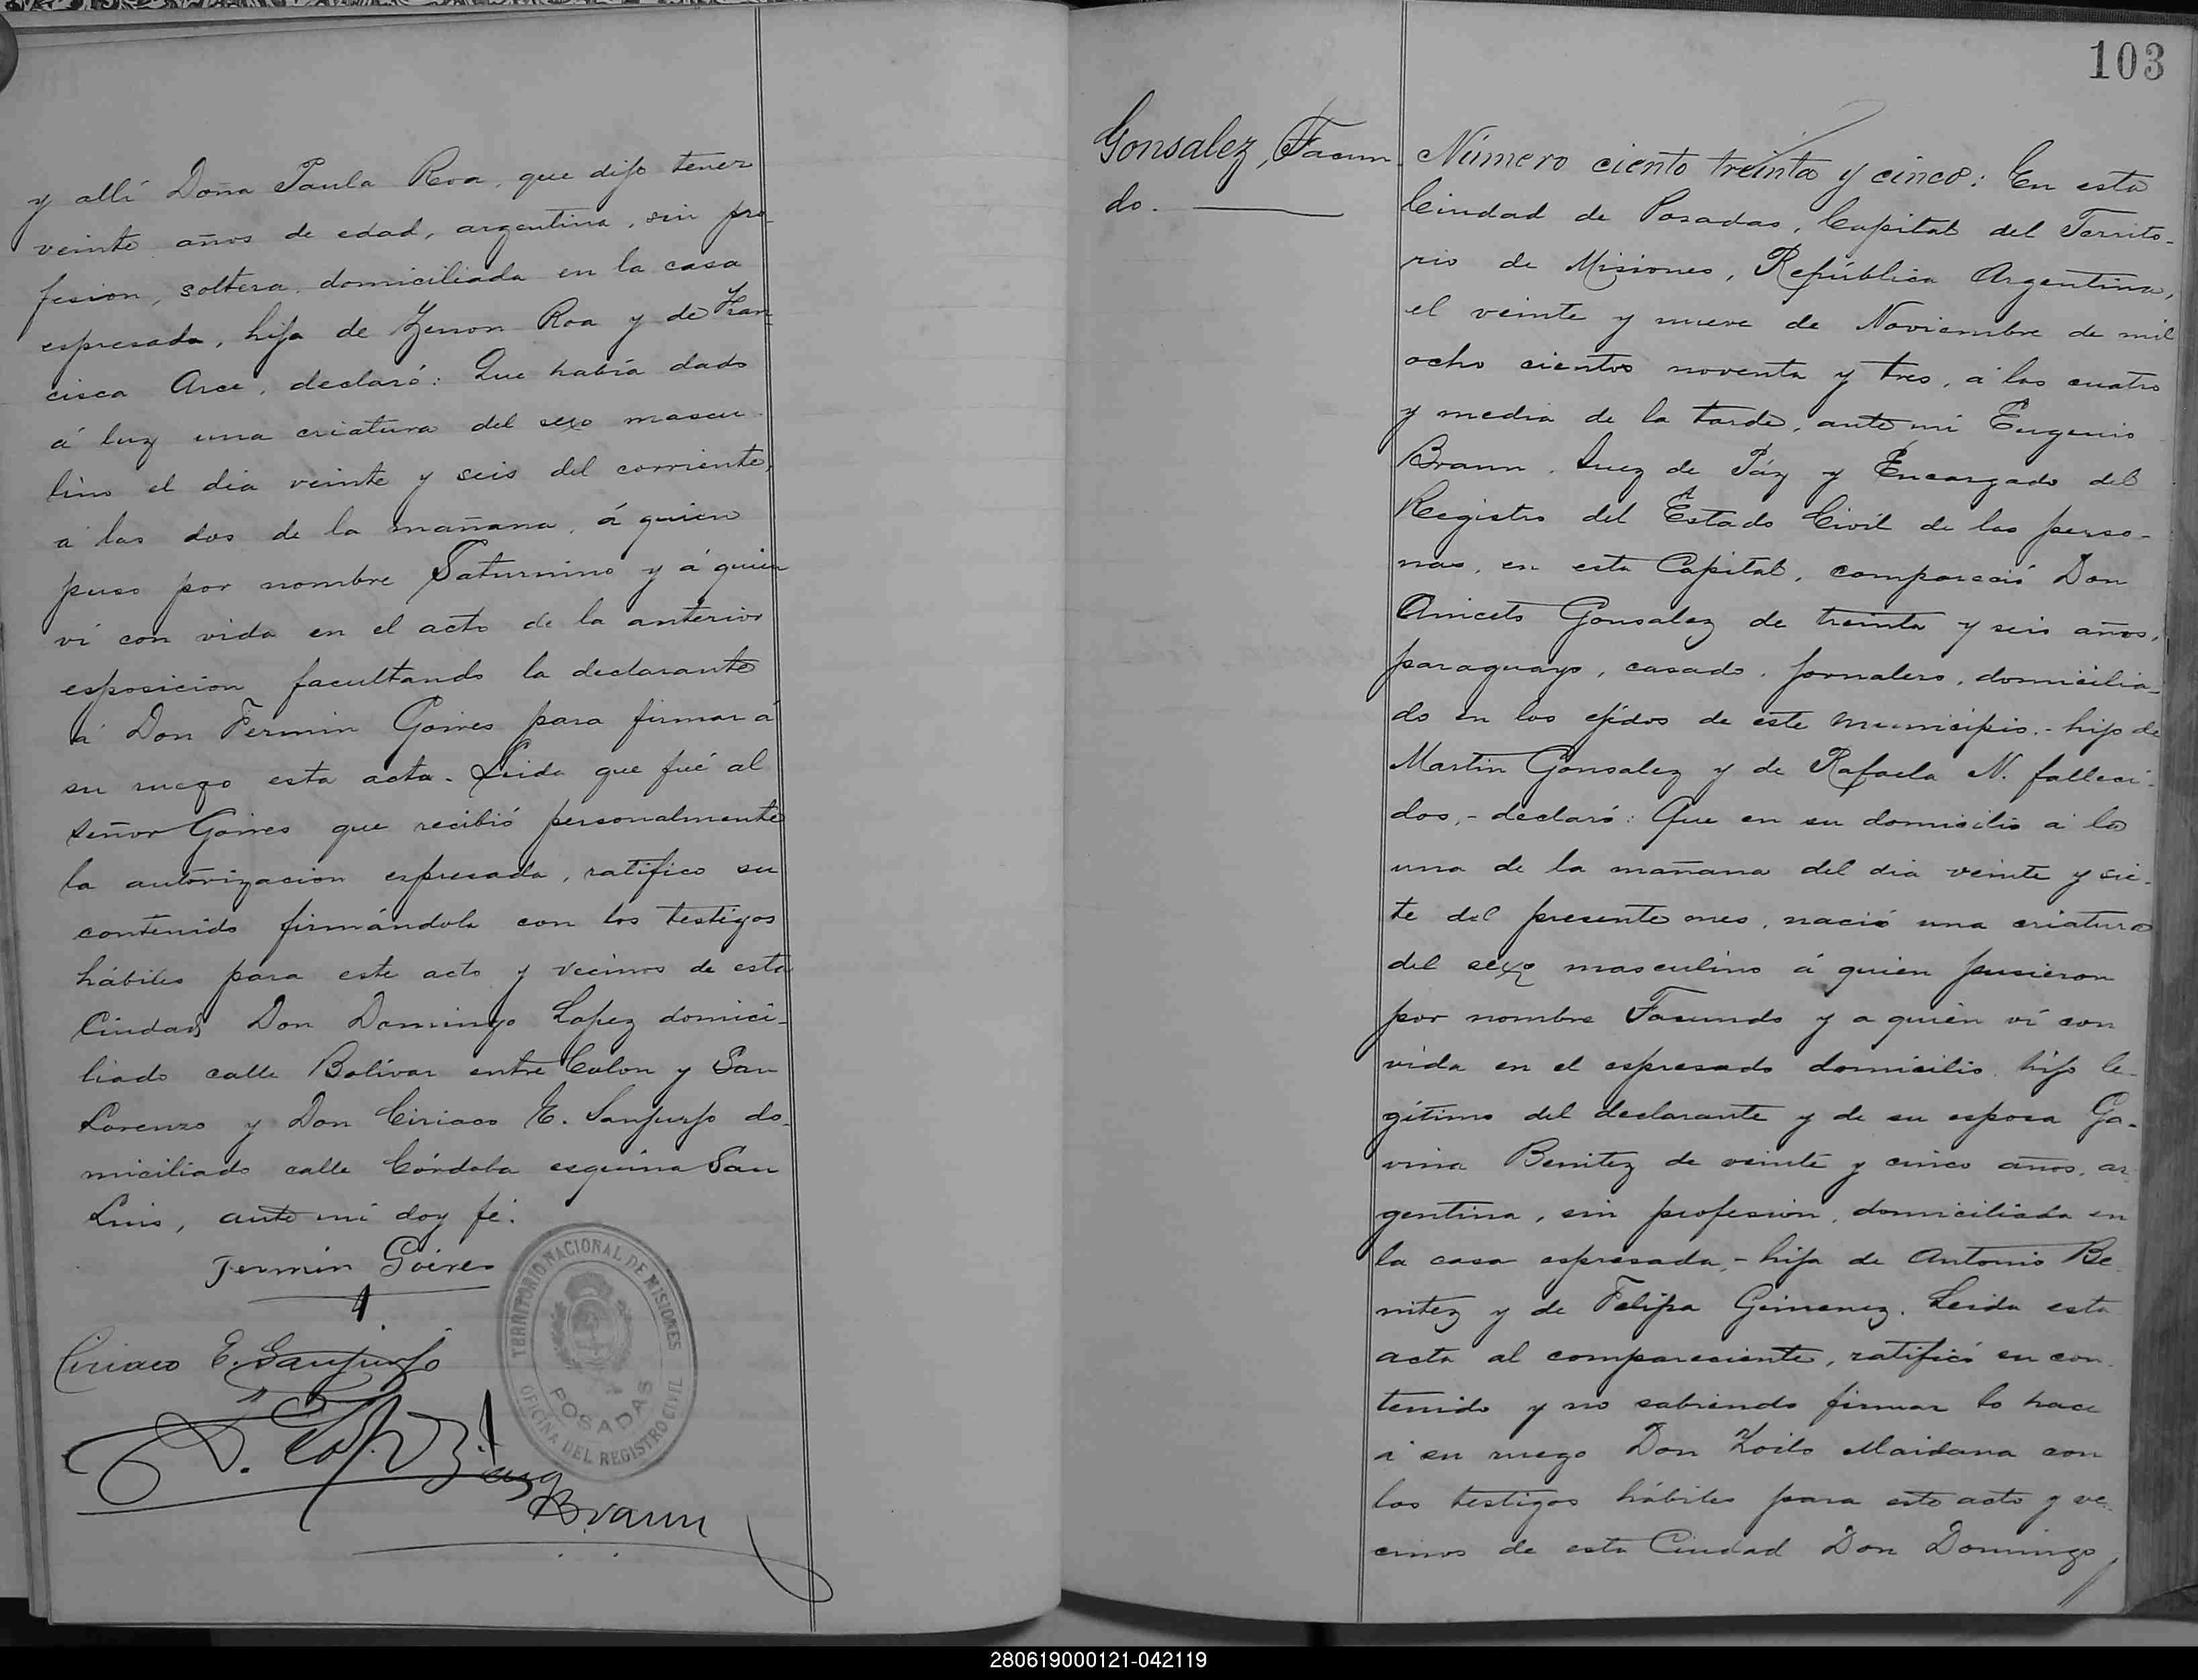 y allí Doña Paula Roa, que dijo tener
veinte años de edad, argentina, sin pro-
fesion, soltera, domiciliada en la casa
espresada, hija de Zenon Roa y de Fran-
cisca Arce, declaró: Que había dado
á luz una criatura del sexo mascu-
lino el dia veinte y seis del corriente,
á las dos de la mañana, á quien
puso por nombre Saturnino y á quien
ví con vida en el acto de la anterior
esposicion facultando la declarante
á Don Fermin Goires para firmar á
su ruego esta acta. Leida que fué al
señor Goires que recibió personalmente
la autorizacion espresada, ratifico su
contenido firmándola con los testigos
hábiles para este acto y vecinos de esta
Ciudad Don Domingo Lopez domici-
liado calle Bolívar entre Colon y San
Lorenzo y Don Ciriaco E. Sanjurjo do-
miciliado calle Córdoba esquina San
Luis, ante mí doy fé.
Fermin Goires
Ciriaco E. Sanjurjo
D. Lopez
Eug Braun
TERRITORIO NACIONAL DE MISIONES
POSADAS
OFICINA DEL REGISTRO CIVIL
103
Gonsalez, Facun-
do.
Número ciento treinta y cinco: En esta
Ciudad de Posadas, Capital del Territo-
rio de Misiones, República Argentina,
el veinte y nueve de Noviembre de mil
ocho cientos noventa y tres, á las cuatro
y media de la tarde, ante mí Eugenio
Braun, Juez de Páz y Encargado del
Registro del Estado Civil de las perso-
nas, en esta Capital, compareció Don
Aniceto Gonsalez de treinta y seis años,
paraguayo, casado, jornalero, domicilia-
do en los ejidos de este Municipio.- hijo de
Martin Gonsalez y de Rafaela N. falleci-
dos,- declaró: Que en su domicilio á la
una de la mañana del dia veinte y sie-
te del presente mes, nació una criatura
del sexo masculino á quien pusieron
por nombre Facundo y a quien ví con
vida en el espresado domicilio, hijo le-
gítimo del declarante y de su esposa Ga-
vina Benitez de veinte y cinco años, ar-
gentina, sin profesion, domiciliada en
la casa espresada,- hija de Antonio Be-
nitez y de Felipa Gimenez. Leida esta
acta al compareciente, ratificó su con-
tenido y no sabiendo firmar lo hace
á su ruego Don Zoilo Maidana con
los testigos hábiles para este acto y ve-
cinos de esta Ciudad Don Domingo
280619000121-042119